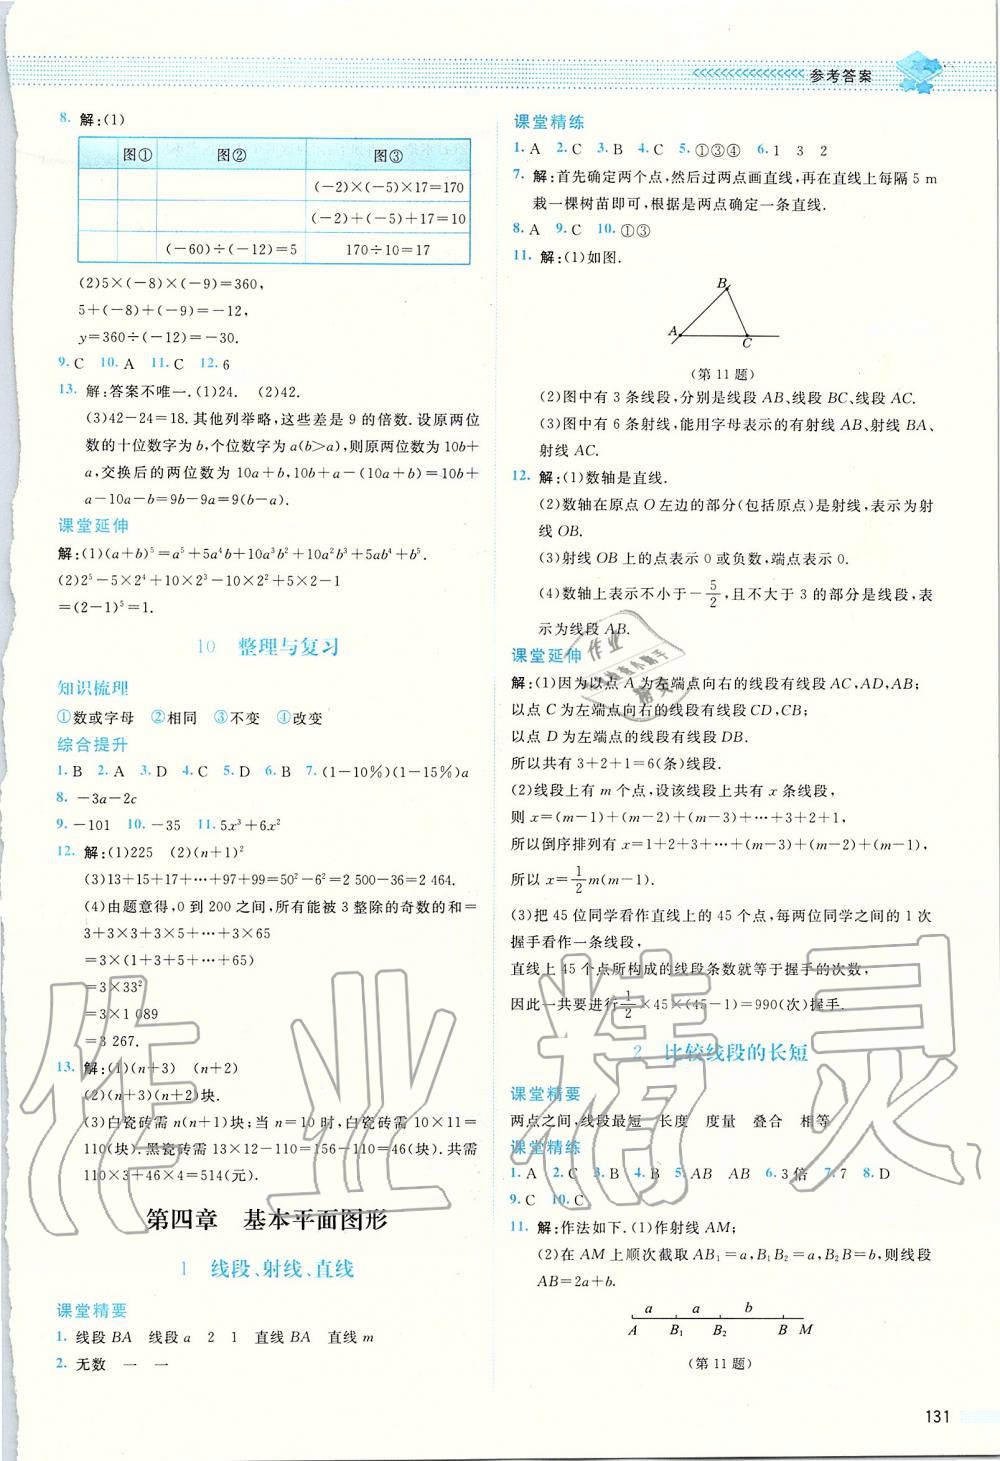 参考答案
8. 解:(1)
图① 图② 图③
(-2)×(-5)×17=170
(-2)+(-5)+17=10
(-60)÷(-12)=5 170÷10=17
(2)5×(-8)×(-9)=360,
5+(-8)+(-9)=-12,
y=360÷(-12)=-30.
9. C 10. A 11. C 12. 6
13. 解:答案不唯一.(1)24. (2)42.
(3)42-24=18. 其他列举略,这些差是 9 的倍数. 设原两位
数的十位数字为 b,个位数字为 a(b>a),则原两位数为 10b+
a,交换后的两位数为 10a+b,10b+a-(10a+b)=10b+
a-10a-b=9b-9a=9(b-a).
课堂延伸
解:(1)(a+b)⁵=a⁵+5a⁴b+10a³b²+10a²b³+5ab⁴+b⁵.
(2)2⁵-5×2⁴+10×2³-10×2²+5×2-1
=(2-1)⁵=1.
10 整理与复习
知识梳理
①数或字母 ②相同 ③不变 ④改变
综合提升
1. B 2. A 3. D 4. C 5. D 6. B 7. (1-10%)(1-15%)a
8. -3a-2c
9. -101 10. -35 11. 5x³+6x²
12. 解:(1)225 (2)(n+1)²
(3)13+15+17+…+97+99=50²-6²=2 500-36=2 464.
(4)由题意得,0 到 200 之间,所有能被 3 整除的奇数的和=
3+3×3+3×5+…+3×65
=3×(1+3+5+…+65)
=3×33²
=3×1 089
=3 267.
13. 解:(1)(n+3) (n+2)
(2)(n+3)(n+2)块.
(3)白瓷砖需 n(n+1)块;当 n=10 时,白瓷砖需 10×11=
110(块). 黑瓷砖需 13×12-110=156-110=46(块). 共需
110×3+46×4=514(元).
第四章 基本平面图形
1 线段、射线、直线
课堂精要
1. 线段 BA 线段 a 2 1 直线 BA 直线 m
2. 无数 一 一
课堂精练
1. A 2. C 3. B 4. C 5. ①③④ 6. 1 3 2
7. 解:首先确定两个点,然后过两点画直线,再在直线上每隔 5 m
栽一棵树苗即可,根据是两点确定一条直线.
8. A 9. C 10. ①③
11. 解:(1)如图.
B
A
C
(第 11 题)
(2)图中有 3 条线段,分别是线段 AB、线段 BC、线段 AC.
(3)图中有 6 条射线,能用字母表示的有射线 AB、射线 BA、
射线 AC.
12. 解:(1)数轴是直线.
(2)数轴在原点 O 左边的部分(包括原点)是射线,表示为射
线 OB.
(3)射线 OB 上的点表示 0 或负数,端点表示 0.
(4)数轴上表示不小于-5/2,且不大于 3 的部分是线段,表
示为线段 AB.
课堂延伸
解:(1)因为以点 A 为左端点向右的线段有线段 AC,AD,AB;
以点 C 为左端点向右的线段有线段 CD,CB;
以点 D 为左端点的线段有线段 DB.
所以共有 3+2+1=6(条)线段.
(2)线段上有 m 个点,设该线段上共有 x 条线段,
则 x=(m-1)+(m-2)+(m-3)+…+3+2+1,
所以倒序排列有 x=1+2+3+…+(m-3)+(m-2)+(m-1),
所以 x=1/2m(m-1).
(3)把 45 位同学看作直线上的 45 个点,每两位同学之间的 1 次
握手看作一条线段,
直线上 45 个点所构成的线段条数就等于握手的次数,
因此一共要进行1/2×45×(45-1)=990(次)握手.
2 比较线段的长短
课堂精要
两点之间,线段最短 长度 度量 叠合 相等
课堂精练
1. A 2. C 3. B 4. B 5. AB AB 6. 3 倍 7. 7 8. D
9. C 10. C
11. 解:作法如下.(1)作射线 AM;
(2)在 AM 上顺次截取 AB₁=a,B₁B₂=a,B₂B=b,则线段
AB=2a+b.
a a b
A B₁ B₂ B M
(第 11 题)
131
作业精灵